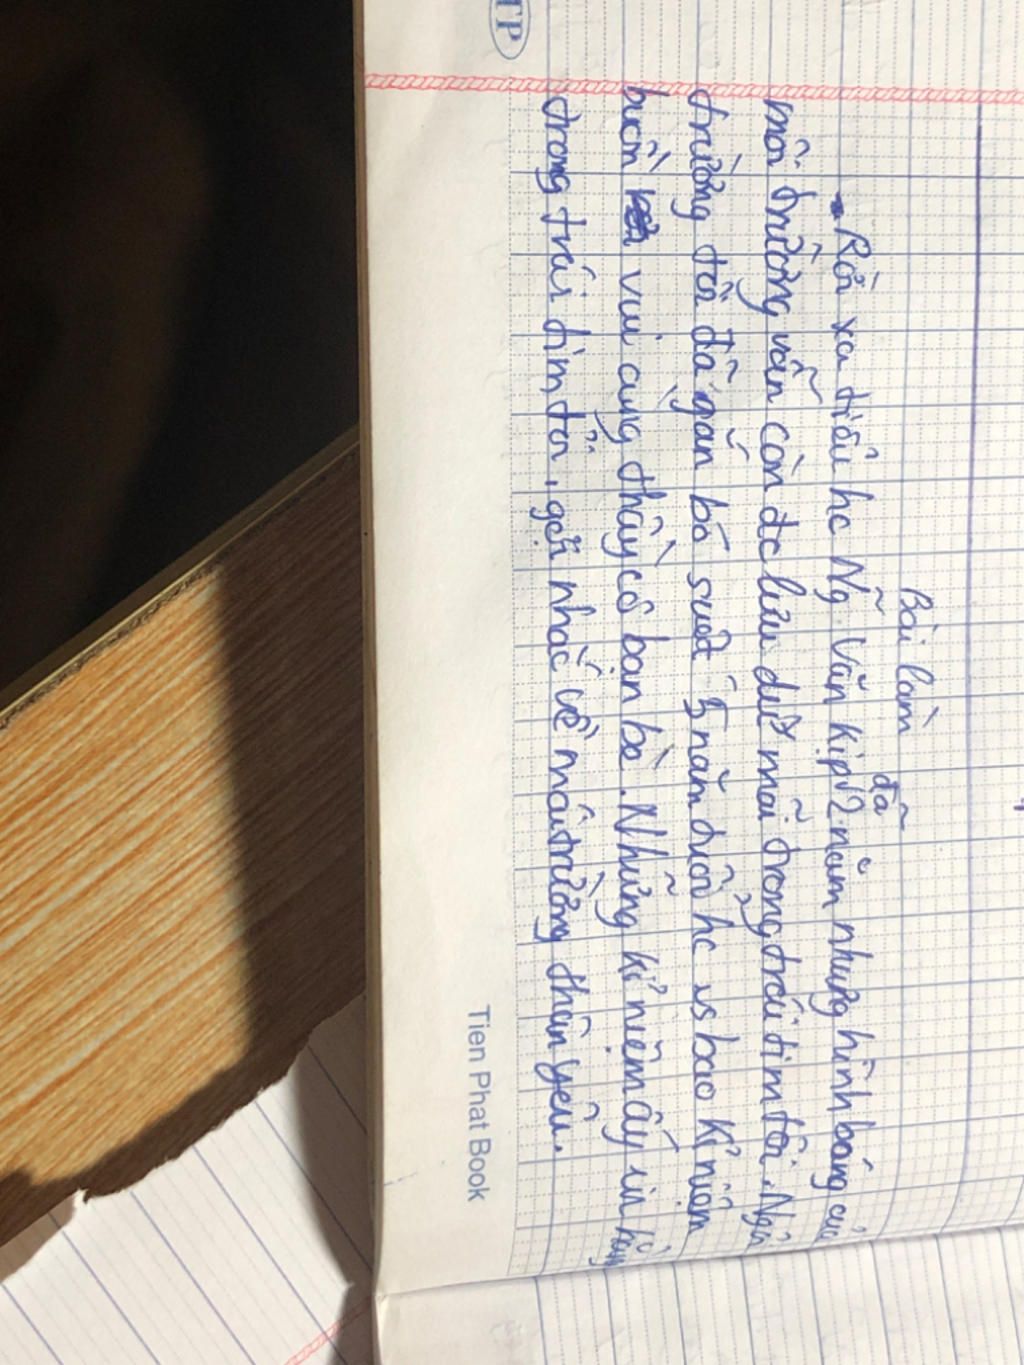 Bài làm
Rời xa tiểu hc Ng. Văn Kịp đã 2 năm nhưng hình bóng của
môi trường vẫn còn đc lưu dữ mãi trong trái tim tôi. Ngôi
trường tôi đã gắn bó suốt 5 năm tuổi hc vs bao kỉ niệm
buồn vui cùng thầy cô bạn bè. Những kỉ niệm ấy in hằn
trong trái tim tôi, gợi nhắc về mái trường thân yêu.
TP
Tien Phat Book